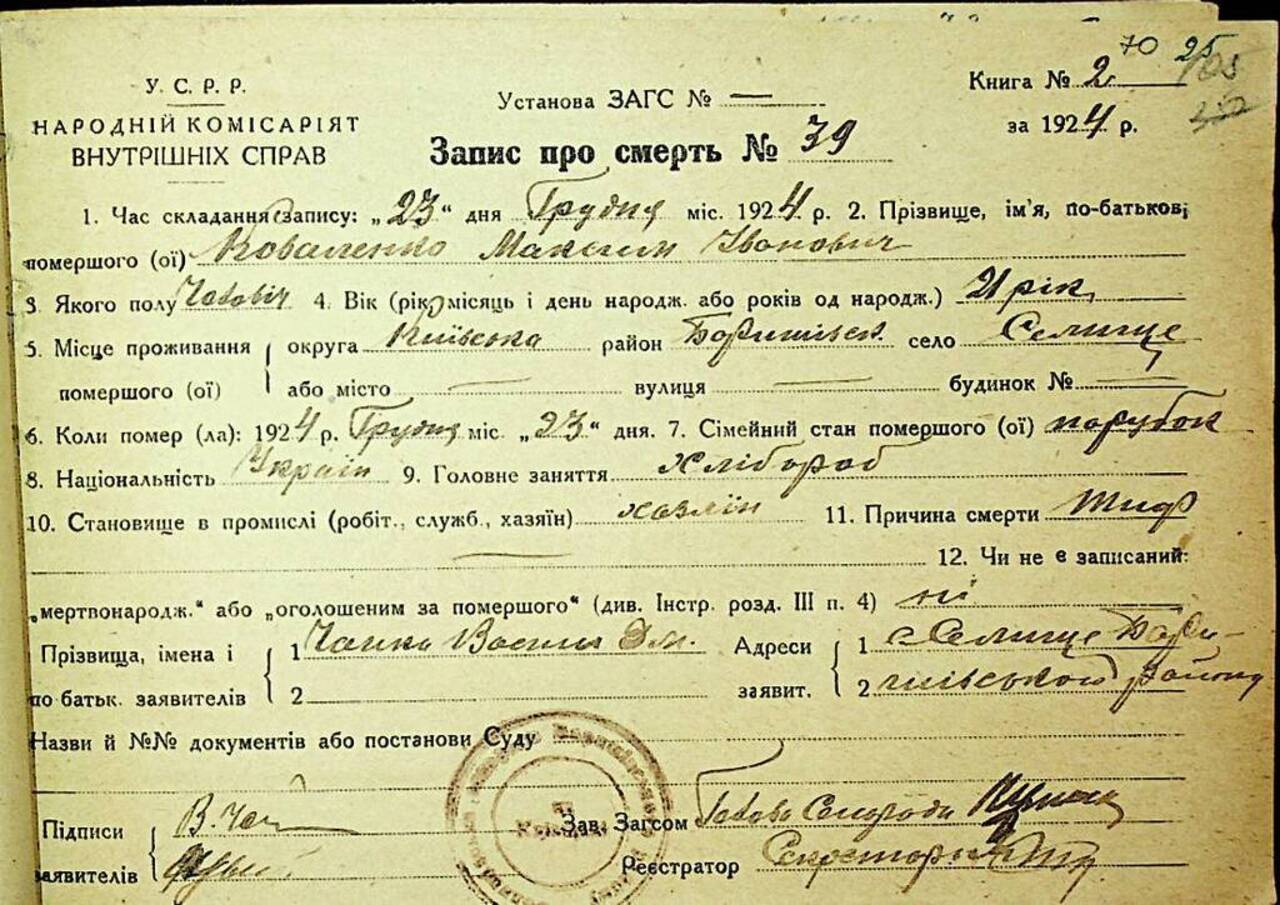 70 25
105
У. С. Р. Р.
НАРОДНІЙ КОМІСАРІЯТ
ВНУТРІШНІХ СПРАВ
Установа ЗАГС № —
Книга № 2
за 1924 р.
Запис про смерть № 39
1. Час складання запису: „23“ дня Грудня міс. 1924 р. 2. Прізвище, ім'я, по-батькові
помершого (ої) Коваленко Максим Іванович
3. Якого полу Чоловіч 4. Вік (рік, місяць і день народж. або років од народж.) 21 рік
5. Місце проживання помершого (ої) округа Київська район Боришпівськ. село Селище
або місто — вулиця — будинок № —
6. Коли помер (ла): 1924 р. Грудня міс. „23“ дня. 7. Сімейний стан помершого (ої) парубок
8. Національність Україн 9. Головне заняття хлібороб
10. Становище в промислі (робіт., служб., хазяїн) хазяїн 11. Причина смерти Тиф
— 12. Чи не є записаний:
„мертвонародж.“ або „оголошеним за помершого“ (див. Інстр. розд. III п. 4) ні
Прізвища, імена і по батьк. заявителів 1 Василь Адреси заявит. 1 с Селище
2 2 району
Назви й №№ документів або постанови Суду
Підписи заявителів Зав. Загсом Голова Сельради
Реєстратор Секретарь